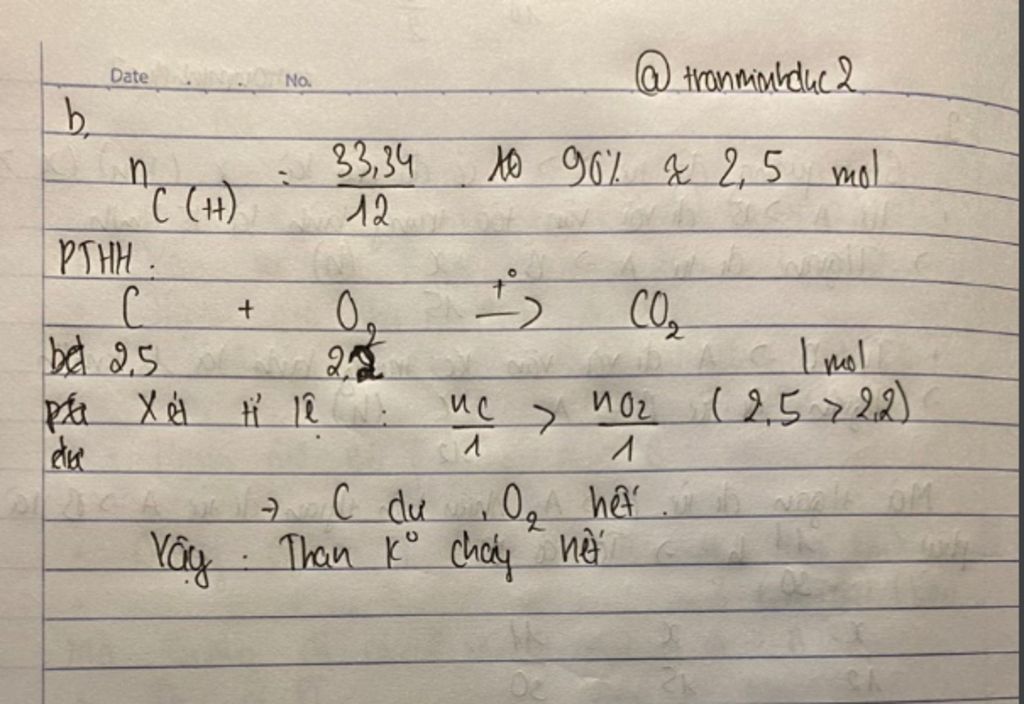 Date . . No.
@tranminhduc2
b,
n C(tt) = 33,34/12 . 90% ≈ 2,5 mol
PTHH:
C + O₂ —t°→ CO₂
bđ 2,5 2,2 1 mol
pứ Xét tỉ lệ : nC/1 > nO₂/1 ( 2,5 > 2,2)
dư
→ C dư , O₂ hết .
Vậy : Than k° cháy hết